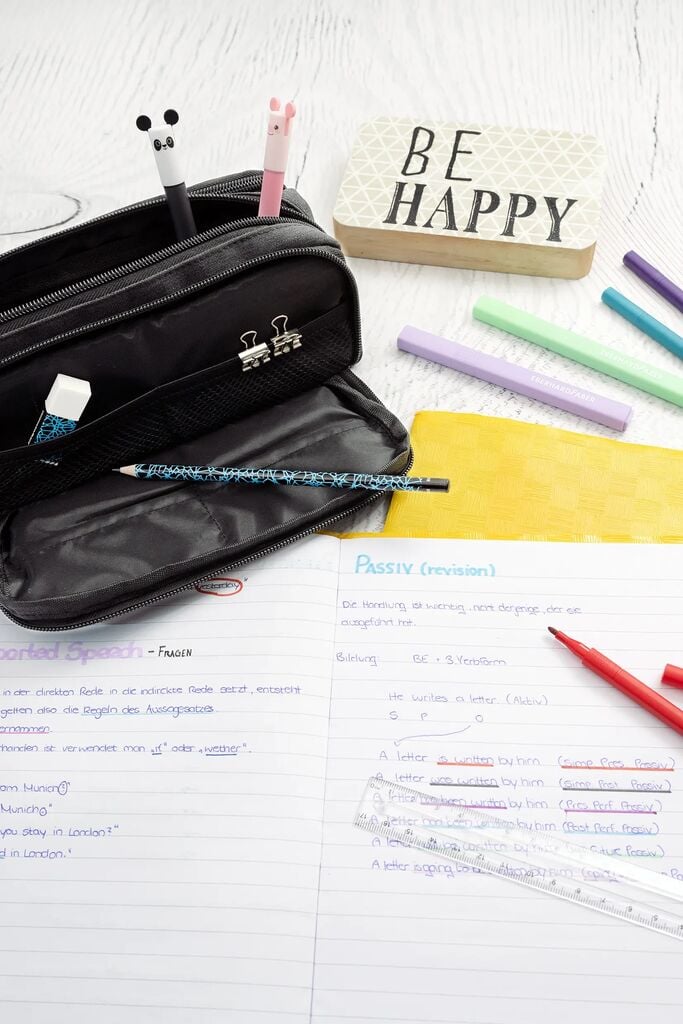 BE
HAPPY
EBERHARD FABER
yesterday"
ported Speech - FRAGEN
in der direkten Rede in die indirekte Rede setzt, entsteht
gelten also die Regeln des Aussagesatzes.
ernommen.
handen ist verwendet man „if" oder „wether".
am Munich?"
Munich."
you stay in London?"
d in London."
PASSIV (revision)
Die Handlung ist wichtig, nicht derjenige, der sie
ausgeführt hat.
Bildung: BE + 3. Verbform
He writes a letter. (Aktiv)
S P O
A letter is written by him (Simple Pres Passiv)
A letter was written by him (simple Past Passiv)
A letter has been written by him (Pres Perf Passiv)
A letter had been written by him (Past Perf Passiv)
A letter written by him Future Passiv)
A letter is going to be by him